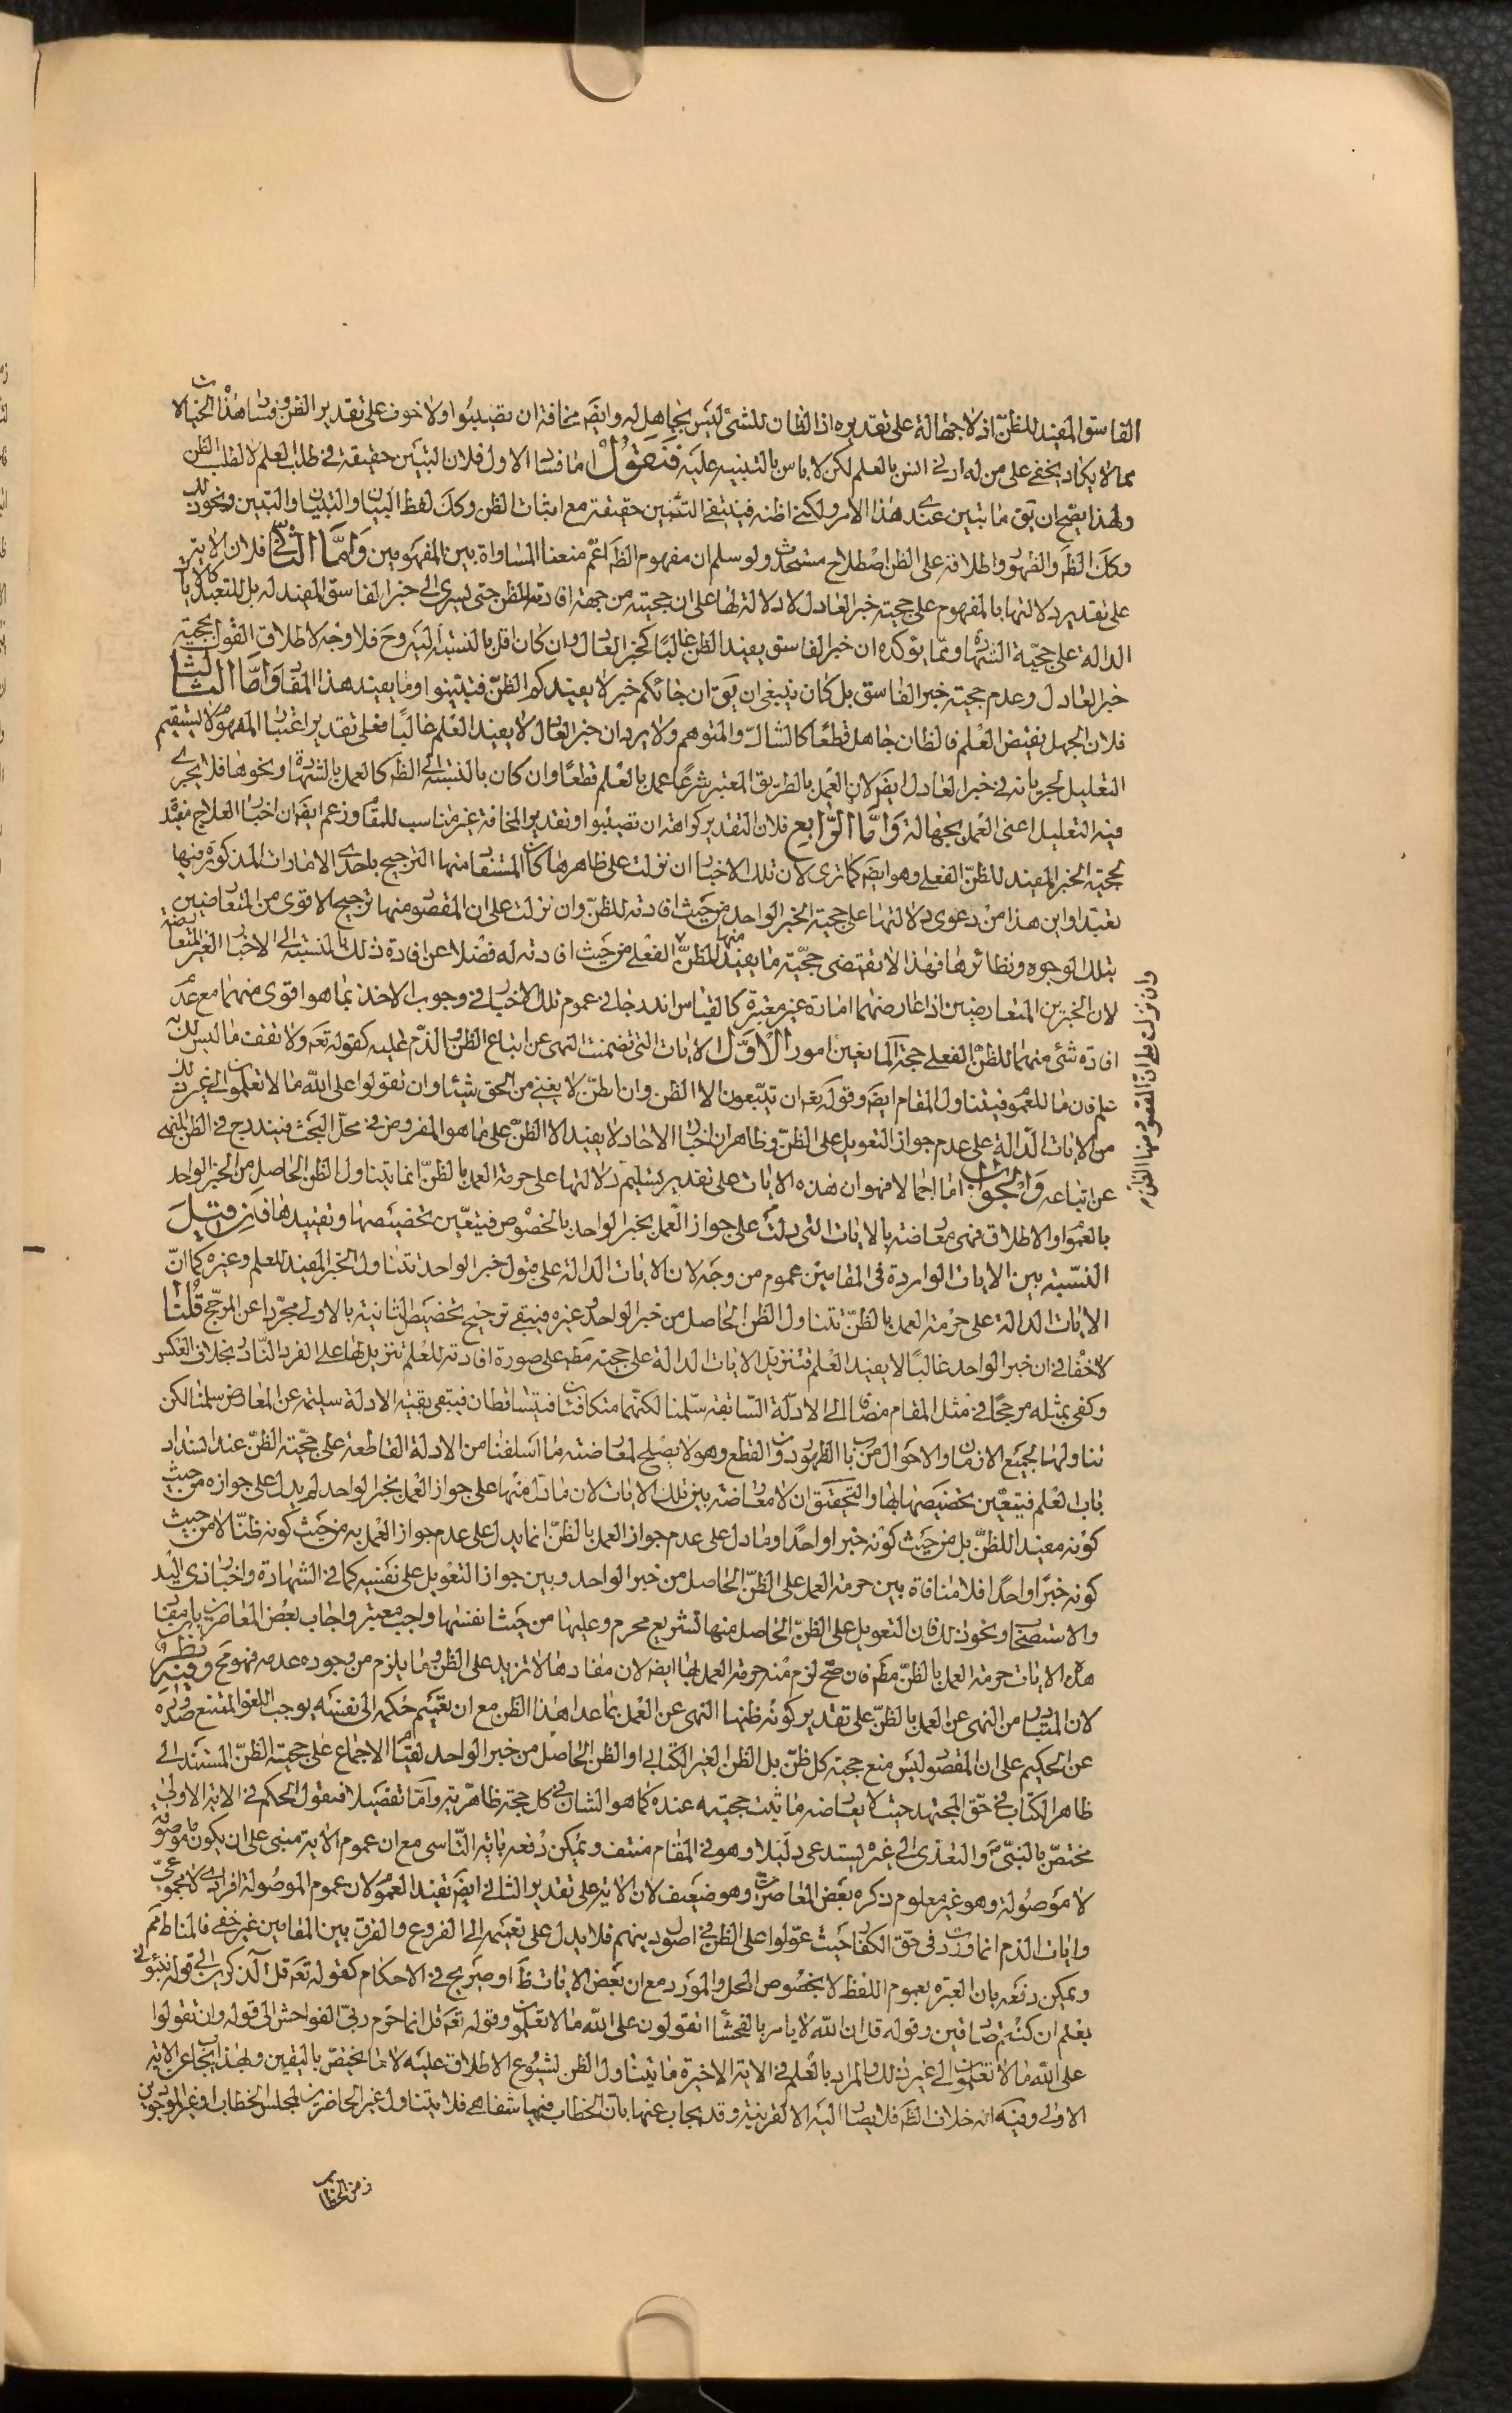 الفاسق المفيد للظنّ اذ لا جهالة على تقديره اذ الظان للشئ ليس بجاهل له وايضَ مخافة ان تصيبوا ولا خوف على تقدير الظن وفساد هذا الخيالات
مما لا يكاد يخفى على من له ادنى انس بالعلم لكن لا باس بالتنبيه عليه فَنَقُولُ اما فساد الاول فلان التبيّن حقيقة فى طلب العلم لا لطلب الظن
ولهذا يصح ان يق ما تبين عندى هذا الامر ولكنى اظنه فينتفى التبيّن حقيقة مع اثبات الظن وكذَ لفظ البيان والتبيان والتبيين ونحو ذلك
وكذَ الظَهَ والظهور واطلاقه على الظن اصطلاح مستحدث ولو سلم ان مفهوم الظهَ اعمّ منعنا المساواة بين المفهومين وَامَّا الثّانى فلان الاية
على تقدير دلالتها بالمفهوم على حجية خبر العادل لا دلالة لها على ان حجيته من جهة افادته للظن حتى يسرى الى خبر الفاسق المفيد له بل للتعبد كالايات
الدالة على حجيّة الشهادة ومما يؤكده ان خبر الفاسق يفيد الظن غالبًا كخبر العادل وان كان اقل بالنسبة اليه وحَ فلا وجه لاطلاق القول بحجية
خبر العادل وعدم حجية خبر الفاسق بل كان ينبغى ان يَق ان جائكم خبر لا يفيدكم الظنّ فتبيّنوا وما يفيد هذا المفاد وَامَّا الثّالث
فلان الجهل نقيض العلم فالظان جاهل قطعًا كالشاكّ والمتوهم ولا يرد ان خبر العادل لا يفيد العلم غالبًا فعلى تقدير اعتبار المفهوم لا يستقيم
التعليل لجريانه فى خبر العادل ايضَ لان العمل بالطريق المعتبر شرعًا عمل بالعلم قطعًا وان كان بالنسبة الى الظهَ كالعمل بالشهادة ونحوها فلا يجرى
فيه التعليل اعنى العمل بجهالة وَامَّا الرّابع فلان التقدير كراهة ان تصيبوا وتقدير المخافة غير مناسب للمقام وزعم ايضَ ان اخبار العلاج مفيدة
لحجية الخبر المفيد للظنّ الفعلى وهو ايضَ كما ترى لان تلك الاخبار ان نزلت على ظاهرها كان المستفاد منها الترجيح باحدى الامارات المذكورة فيها
تعبّدا واين هذا من دعوى دلالتها على حجية الخبر الواحد من حيث افادته للظنّ وان نزلت على ان المقصود منها ترجيح الاقوى من المتعارضين
بتلك الوجوه ونظائرها فهذا لا يقتضى حجّية ما يفيد منها للظنّ الفعلى من حيث افادته له فضلا عن افادة ذلك بالنسبة الى الاخبار الغير المتعارضة
لان الخبرين المتعارضين اذا عارضهما امارة غير معتبرة كالقياس اندرجا فى عموم تلك الاخبار فى وجوب الاخذ بما هو اقوى منهما مع عدم
افادة شئ منهما للظنّ الفعلى حجة المانعين امور الْاَوَّلُ الايات التى تضمنت النهى عن اتباع الظن والذمّ عليه كقوله تعَ ولا تقف ما ليس لك به
علم فان ما للعموم فيتناول المقام ايضَ وقوله تعَ ان تتبّعون الا الظن وان الظنّ لا يغنى من الحق شيئا وان تقولوا على الله ما لا تعلمون الى غير ذلك
من الايات الدالة على عدم جواز التعويل على الظنّ وظاهر ان اخبار الاحاد لا يفيد الا الظنّ على ما هو المفروض فى محلّ البحث فيندرج فى الظن المنهى
عن اتباعه وَالجواب اما اجمالا فهو ان هذه الايات على تقدير تسليم دلالتها على حرمة العمل بالظنّ انما يتناول الظن الحاصل من الخبر الواحد
بالعموم او الاطلاق فهى معارضة بالايات التى دلت على جواز العمل بخبر الواحد بالخصوص فيتعيّن تخصيصها وتقييدها فَان قيل
النسبة بين الايات الواردة فى المقامين عموم من وجه لان الايات الدالة على قبول خبر الواحد تتناول الخبر المفيد للعلم وغيره كما انّ
الايات الدالة على حرمة العمل بالظنّ تتناول الظن الحاصل من خبر الواحد وغيره فيبقى ترجيح تخصيص الثانية بالاولى مجرّدا عن المرجّح قُلنا
لا خفاء فى ان خبر الواحد غالبًا لا يفيد العلم فتنزيل الايات الدالة على حجيته مطَ على صورة افادته للعلم تنزيل لها على الفرد النّادر بخلاف العكس
وكفى بمثله مرجحًا فى مثل المقام مضافا الى الادلّة السّابقة سلّمنا لكنّهما متكافئان فيتساقطان فيبقى بقيّة الادلة سليمة عن المعارض سلمنا لكن
تناولها لجميع الازمان والاحوال من باب الظهور دون القطع وهو لا يصلح لمعارضة ما اسلفنا من الادلة القاطعة على حجّية الظنّ عند انسداد
باب العلم فيتعّين تخصيصها بها والتحقيق ان لا معارضة بين تلك الايات لان ما دلّ منها على جواز العمل بخبر الواحد لم يدل على جوازه من حيث
كونه مفيدا للظنّ بل من حيث كونه خبرا واحدًا وما دل على عدم جواز العمل بالظنّ انما يدل على عدم جواز العمل به من حيث كونه ظنّا لا من حيث
كونه خبرًا واحدًا فلا منافاة بين حرمة العمل على الظنّ الحاصل من خبر الواحد وبين جواز التعويل على نفسه كما فى الشهادة واخبار ذى اليد
والاستصحاب ونحو ذلك فان التعويل على الظنّ الحاصل منها تشريع محرم وعليها من حيث انفسها واجب معتبر واجاب بعض المعاصرين بان مفاد
هذه الايات حرمة العمل بالظنّ مطَ فان صحّ لزم منه حرمة العمل بها ايضَ لان مفادها لا تزيد على الظن وما يلزم من وجوده عدمه فهو محَ وفيه نظر
لان المتبادر من النهى عن العمل بالظنّ على تقدير كونه ظنيا النهى عن العمل بما عدا هذا الظن مع ان تعميم حكمه الى نفسه يوجب اللغو الممتنع صدوره
عن الحكيم على ان المقصود ليس منع حجية كل ظنّ بل الظن الغير الكتابى او الظن الحاصل من خبر الواحد لقيام الاجماع على حجية الظنّ المستند الى
ظاهر الكتاب فى حقّ المجتهد حيث لا يعارضه ما ثبت حجيته عنده كما هو الشان فى كل حجة ظاهريّة وَامّا تفصيلا فنقول الحكم فى الاية الاولى
مختصّ بالنبىّ ص والتعدّى الى غيره يستدعى دليلا وهو فى المقام منتف ويمكن دفعه باية التّاسى مع ان عموم الاية مبنى على ان يكون ما موصوفة
لا موصولة وهو غير معلوم ذكره بعض المعاصرين وهو ضعيف لان الاية على تقدير الثانى ايضَ تفيد العموم لان عموم الموصولة افرادى لا مجموعى
وايات الذم انما وردت فى حق الكفار حيث عوّلوا على الظن فى اصول دينهم فلا يدل على تعميمه الى الفروع والفرق بين المقامين غير خفى فالمناط ممّ
ويمكن دفعه بان العبرة بعموم اللفظ لا بخصوص المحل والمورد مع ان بعض الايات ظَ او صريح فى الاحكام كقوله تعَ قل آلذكرين الى قوله نبئونى
بعلم ان كنتم صادقين وقوله قل ان الله لا يامر بالفحشاء اتقولون على الله ما لا تعلمون وقوله تعَ قل انما حرّم ربىّ الفواحش الى قوله وان تقولوا
على الله ما لا تعلمون الى غير ذلك والمراد بالعلم فى الاية الاخيرة ما يتناول الظن لشيوع الاطلاق عليه لا ما يختصّ باليقين ولهذا يجاب عن الاية
الاولى وفيه انه خلاف الظهَ فلا يصار اليه الا لقرينة وقد يجاب عنها بان الخطاب فيها شفاهى فلا يتناول غير الحاضرين لمجلس الخطاب او غير الموجودين
زمن الخطاب
وان نزلت على ان المقصود منها الظن